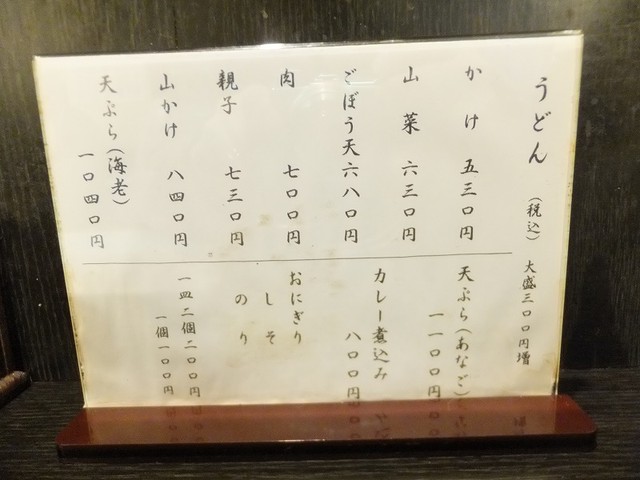 うどん (税込) 大盛三〇〇円増
かけ 五三〇円
山菜 六三〇円
ごぼう天 六八〇円
肉 七〇〇円
親子 七三〇円
山かけ 八四〇円
天ぷら(海老) 一〇四〇円
天ぷら(あなご)
一一〇〇
カレー煮込み
八〇〇円
おにぎり
しそ
のり
一皿二個二〇〇円
一個一〇〇円